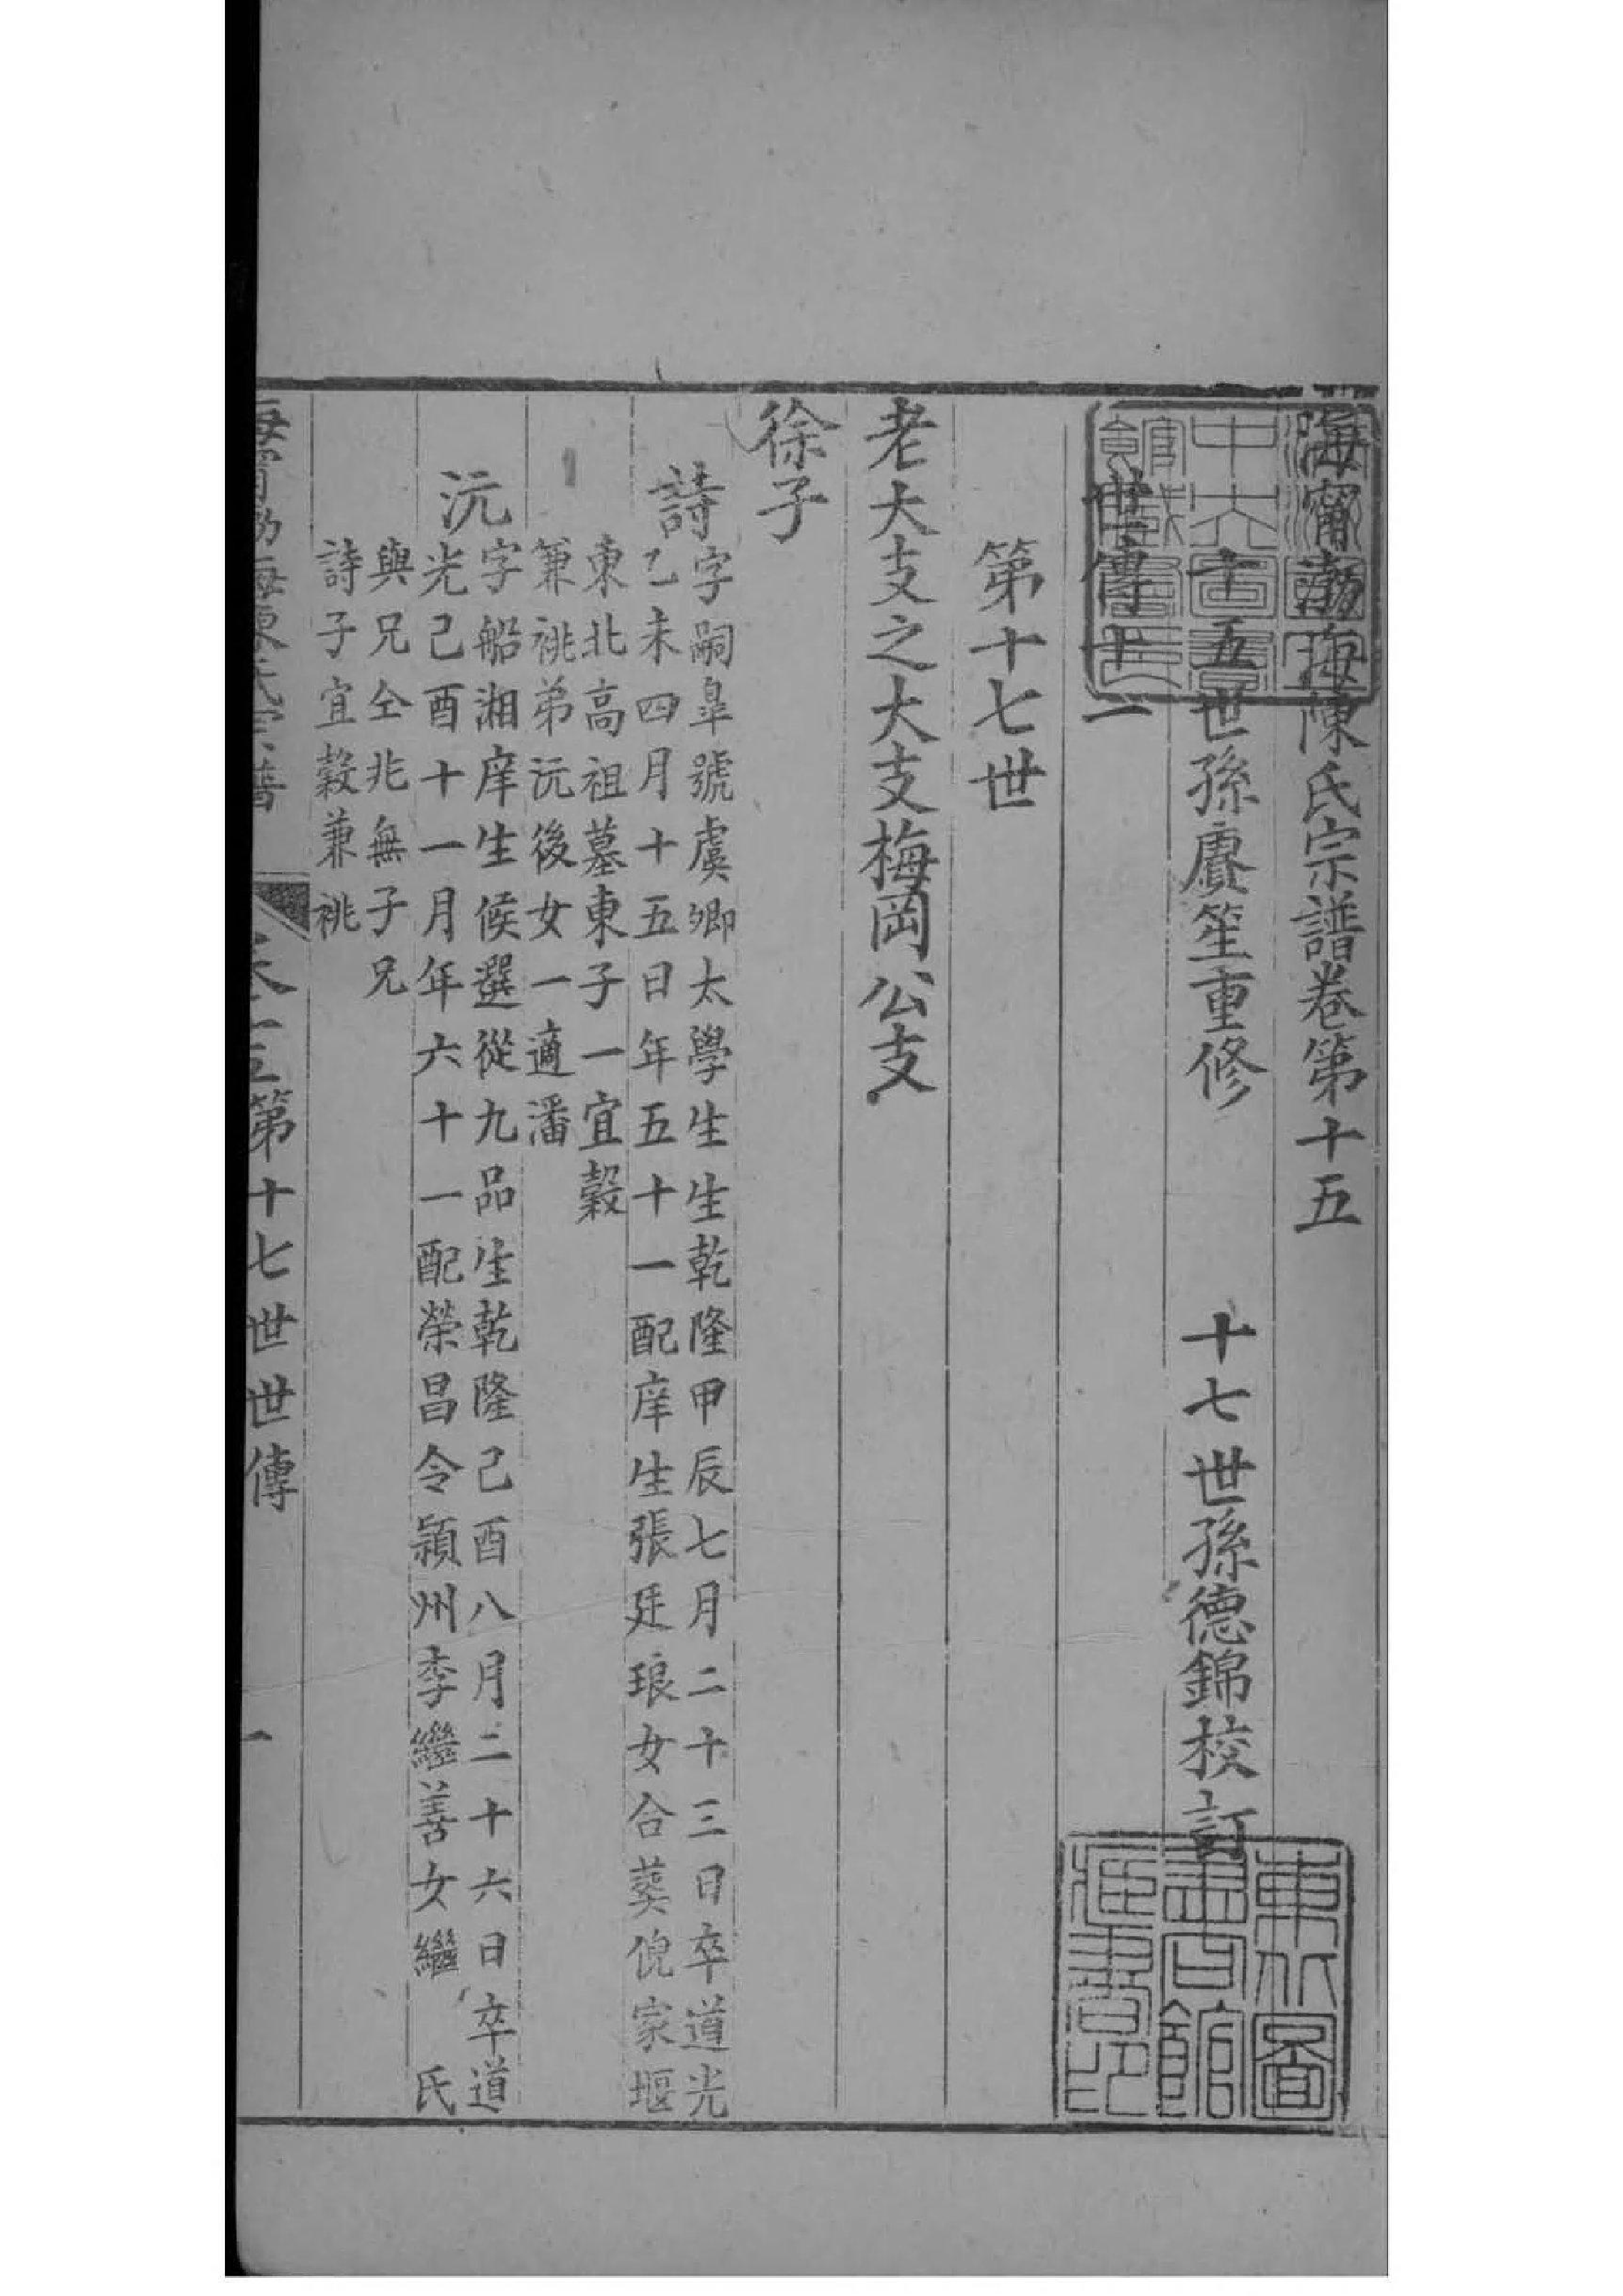 海甯渤海陳氏宗譜卷第十五
十五世孫賡笙重修　十七世孫德錦校訂
世傳十一
第十七世
老大支之大支梅岡公支
徐子
詩
字嗣臯號虞卿太學生生乾隆甲辰七月二十三日卒道光
乙未四月十五日年五十一配庠生張廷琅女合葬倪家堰
東北高祖墓東子一宜穀
兼祧弟沅後女一適潘
沅
字船湘庠生候選從九品生乾隆己酉八月二十六日卒道
光己酉十一月年六十一配榮昌令潁州李繼善女繼　氏
與兄仝兆無子兄
詩子宜穀兼祧
海甯渤海陳氏宗譜　卷十五第十七世世傳　一
東北圖書館藏書印